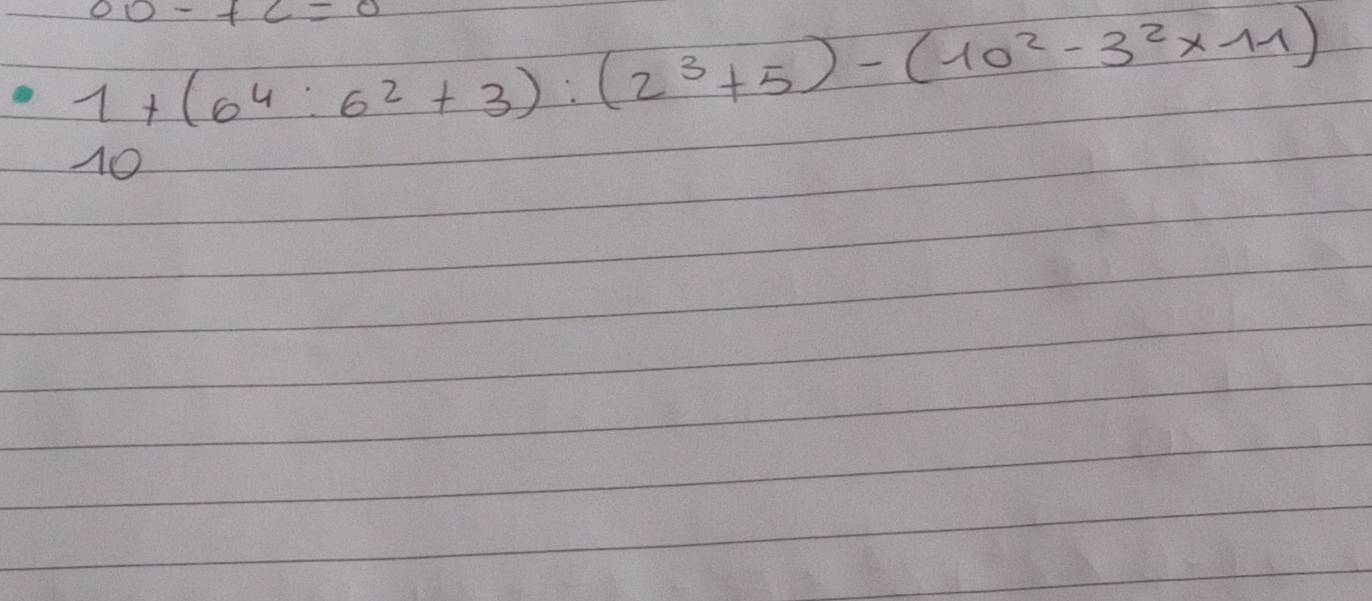 1 + (6⁴ : 6² + 3) : (2³ + 5) - (10² - 3² × 11)
10